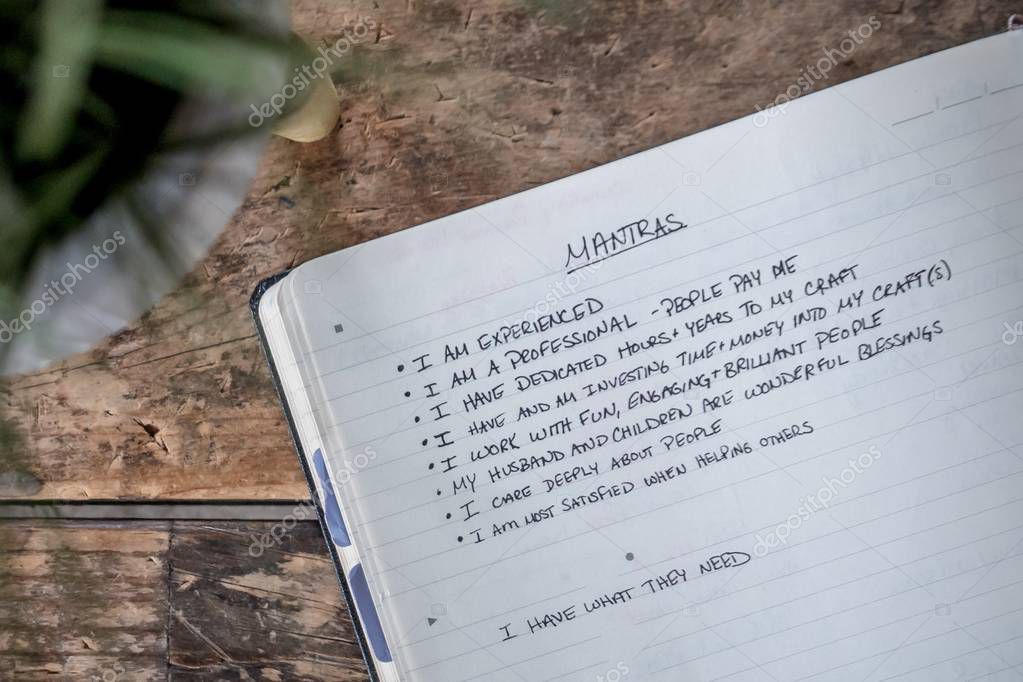 MANTRAS
• I AM EXPERIENCED
• I AM A PROFESSIONAL - PEOPLE PAY ME
• I HAVE DEDICATED HOURS + YEARS TO MY CRAFT
• I HAVE AND AM INVESTING TIME + MONEY INTO MY CRAFT(S)
• I WORK WITH FUN, ENGAGING + BRILLIANT PEOPLE
• MY HUSBAND AND CHILDREN ARE WONDERFUL BLESSINGS
• I CARE DEEPLY ABOUT PEOPLE
• I AM MOST SATISFIED WHEN HELPING OTHERS
I HAVE WHAT THEY NEED
depositphotos
depositphotos
depositphotos
depositphotos
depositphotos